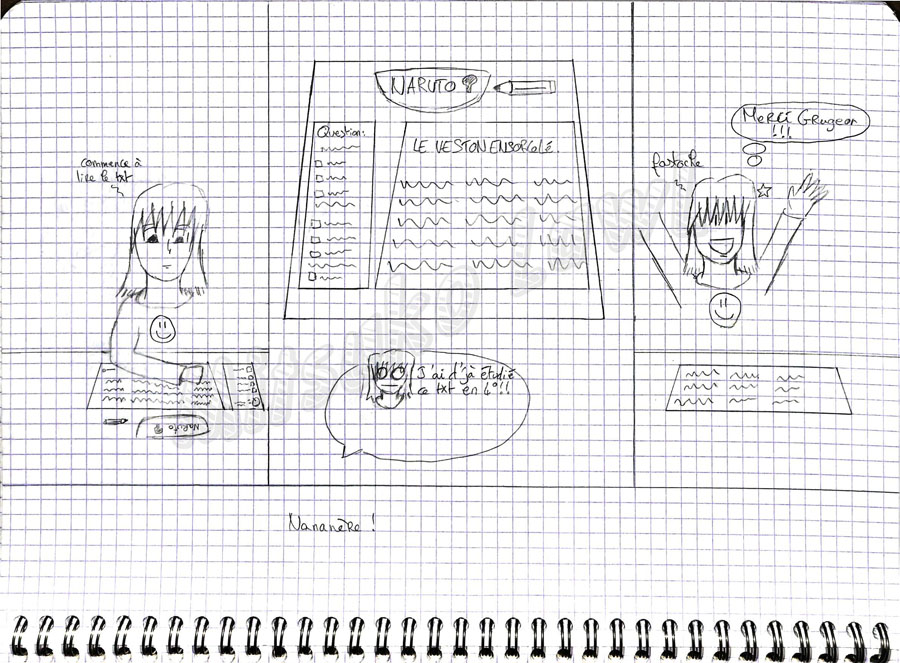 commence à
lire le txt
Naruto
NARUTO
Question:
LE VESTON ENSORCELÉ.
J'ai d'jà étudié
ce txt en 4°!!
fastoche
Merci Grugeon
!!!
Nananère !